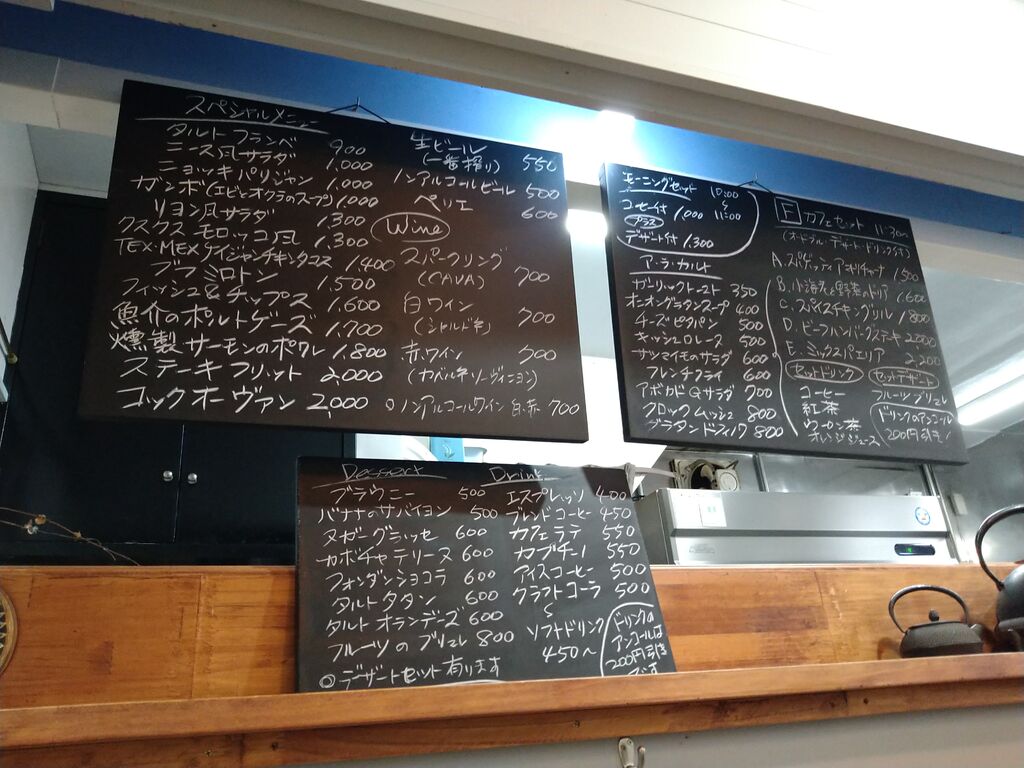 スペシャルメニュー
タルト フランベ 900
ニース風サラダ 1.000
ニョッキ パリジャン 1.000
ガンボ(エビとオクラのスープ) 1.000
リヨン風サラダ 1.300
クスクス モロッコ風 1.300
TEX-MEX ケイジャンチキンタコス 1.400
ブフ ミロトン 1.500
フィッシュ&チップス 1.600
魚介のポルトゲーズ 1.700
燻製サーモンのポワレ 1.800
ステーキ フリット 2,000
コック オー ヴァン 2,000
生ビール
(一番搾り) 550
ノンアルコールビール 500
ペリエ 600
Wine
スパークリング
(CAVA) 700
白ワイン
(シャルドネ) 700
赤ワイン 700
(カベルネ・ソーヴィニヨン)
○ノンアルコールワイン 白・赤 700
モーニングセット 10:00
〜
11:00
コーヒー付 1,000
プラス
デザート付 1.300
ア・ラ・カルト
ガーリックトースト 350
オニオングラタンスープ 400
チーズ ピタパン 500
キッシュロレーヌ 500
サツマイモのサラダ 600
フレンチフライ 600
アボカドのサラダ 700
クロック ムッシュ 800
グラタン ドフィノワ 800
F カフェセット 11:30
(オードブル・デザート・ドリンク付)
A. スパゲッティ アマトリチャーナ 1,500
B. 小海老と野菜のドリア 1.600
C. スパイスチキングリル 1.800
D. ビーフハンバーグステーキ 2000
E. ミックスパエリア 2,200
セットドリンク
コーヒー
紅茶
ウーロン茶
オレンジジュース
セットデザート
フルーツブリュレ
ドリンクのアンコール
200円引き!
Dessert
ブラウニー 500
バナナのサバイヨン 500
ヌガーグラッセ 600
カボチャ テリーヌ 600
フォンダンショコラ 600
タルト タタン 600
タルト オランデーズ 600
フルーツの ブリュレ 800
◎デザートセット有ります
Drink
エスプレッソ 400
ブレンドコーヒー 450
カフェラテ 550
カプチーノ 550
アイスコーヒー 500
クラフトコーラ 500
〜
ソフトドリンク
450〜
ドリンクの
アンコールは
200円引き
です